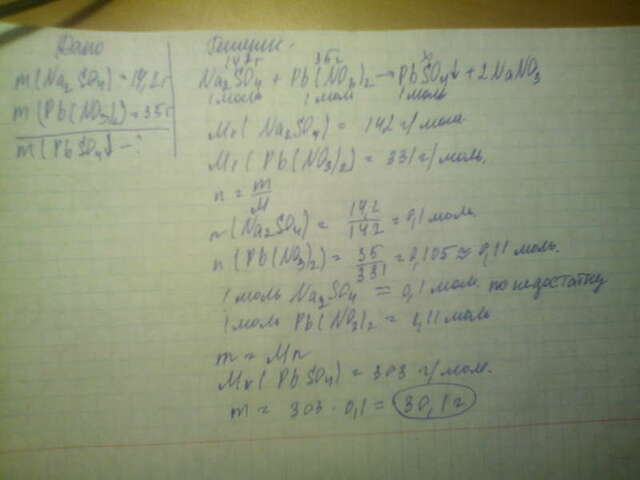 Дано
m(Na2SO4) = 14,2г
m(Pb(NO3)2) = 35г
m(PbSO4)↓ - ?
Решение.
14,2г 35г x
Na2SO4 + Pb(NO3)2 → PbSO4↓ + 2NaNO3
1моль 1моль 1моль
Mr(Na2SO4) = 142 г/моль
Mr(Pb(NO3)2) = 331 г/моль.
n = m/M
n(Na2SO4) = 14,2/142 = 0,1 моль.
n(Pb(NO3)2) = 35/331 = 0,105 ≈ 0,11 моль.
1 моль Na2SO4 = 0,1 моль. по недостатку
1 моль Pb(NO3)2 = 0,11 моль
m = Mn
Mr(PbSO4) = 303 г/моль.
m = 303 · 0,1 = 30,1 г